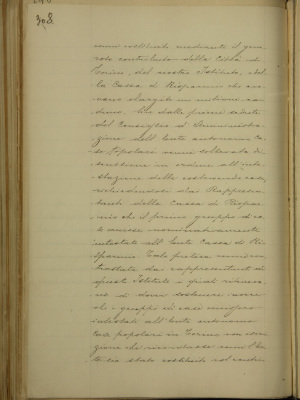 308
venni costituito mediante il gene-
roso contributo della Città di
Torino, del nostro Istituto, del-
la Cassa di Risparmio che ave-
vano elargito un milione ca-
duno. Fin dalle prime sedute
del Consiglio d'Amministra-
zione dell'Ente autonomo Ca-
se Popolari venne sollevata di-
scussione in ordine all'inte-
stazione delle costruende case
richiedendosi dai Rappresen-
tanti della Cassa di Rispar-
mio che il primo gruppo di ca-
se venisse nominativamente
intestato all'Ente Cassa di Ri-
sparmio. Tale pretesa venne con-
trastata dai rappresentanti di
questo Istituto i quali ritenne-
ro di dover sostenere invece
che i gruppi di case
intestati all'Ente autonomo
Case popolari in Torino
che
sia stato costituito col contri-